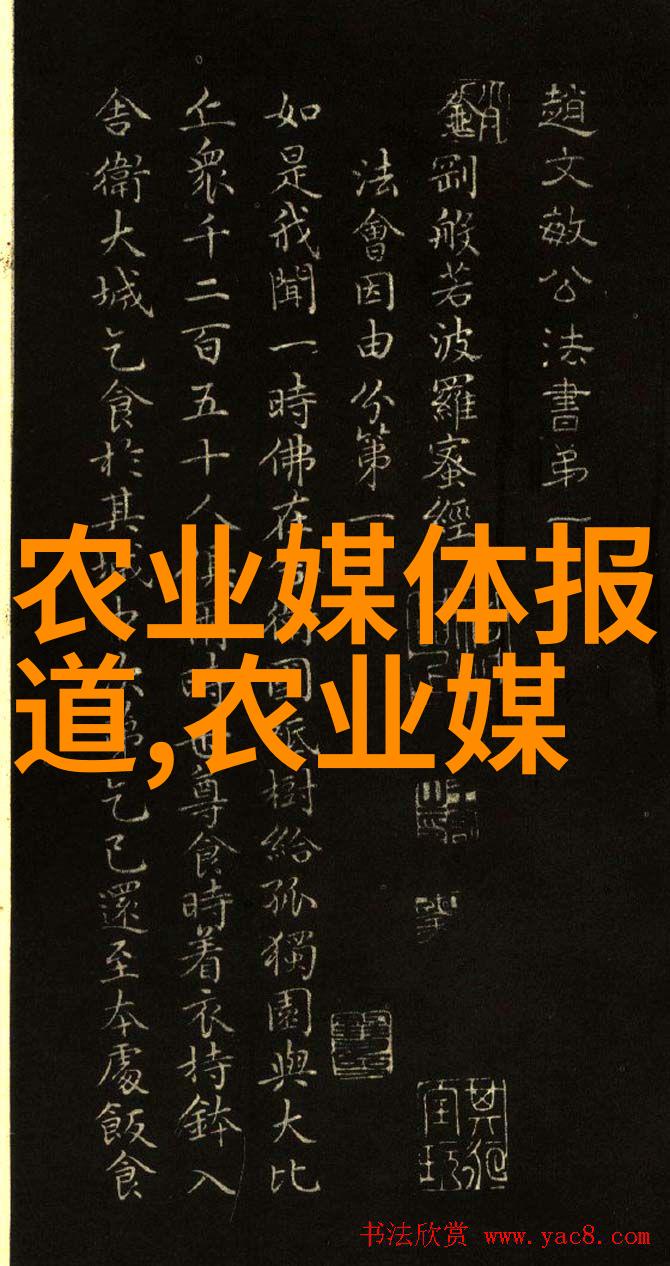 趙文敏公法書弟一
金剛般若波羅蜜經
法會因由分第一
如是我聞一時佛在衛國祇樹給孤獨園與大比
丘眾千二百五十人俱時世尊食時着衣持鉢入
舍衛大城乞食於其城中次第乞已還至本處飯食
农业媒体报
道,农业媒
书法欣赏 www.yac8.com